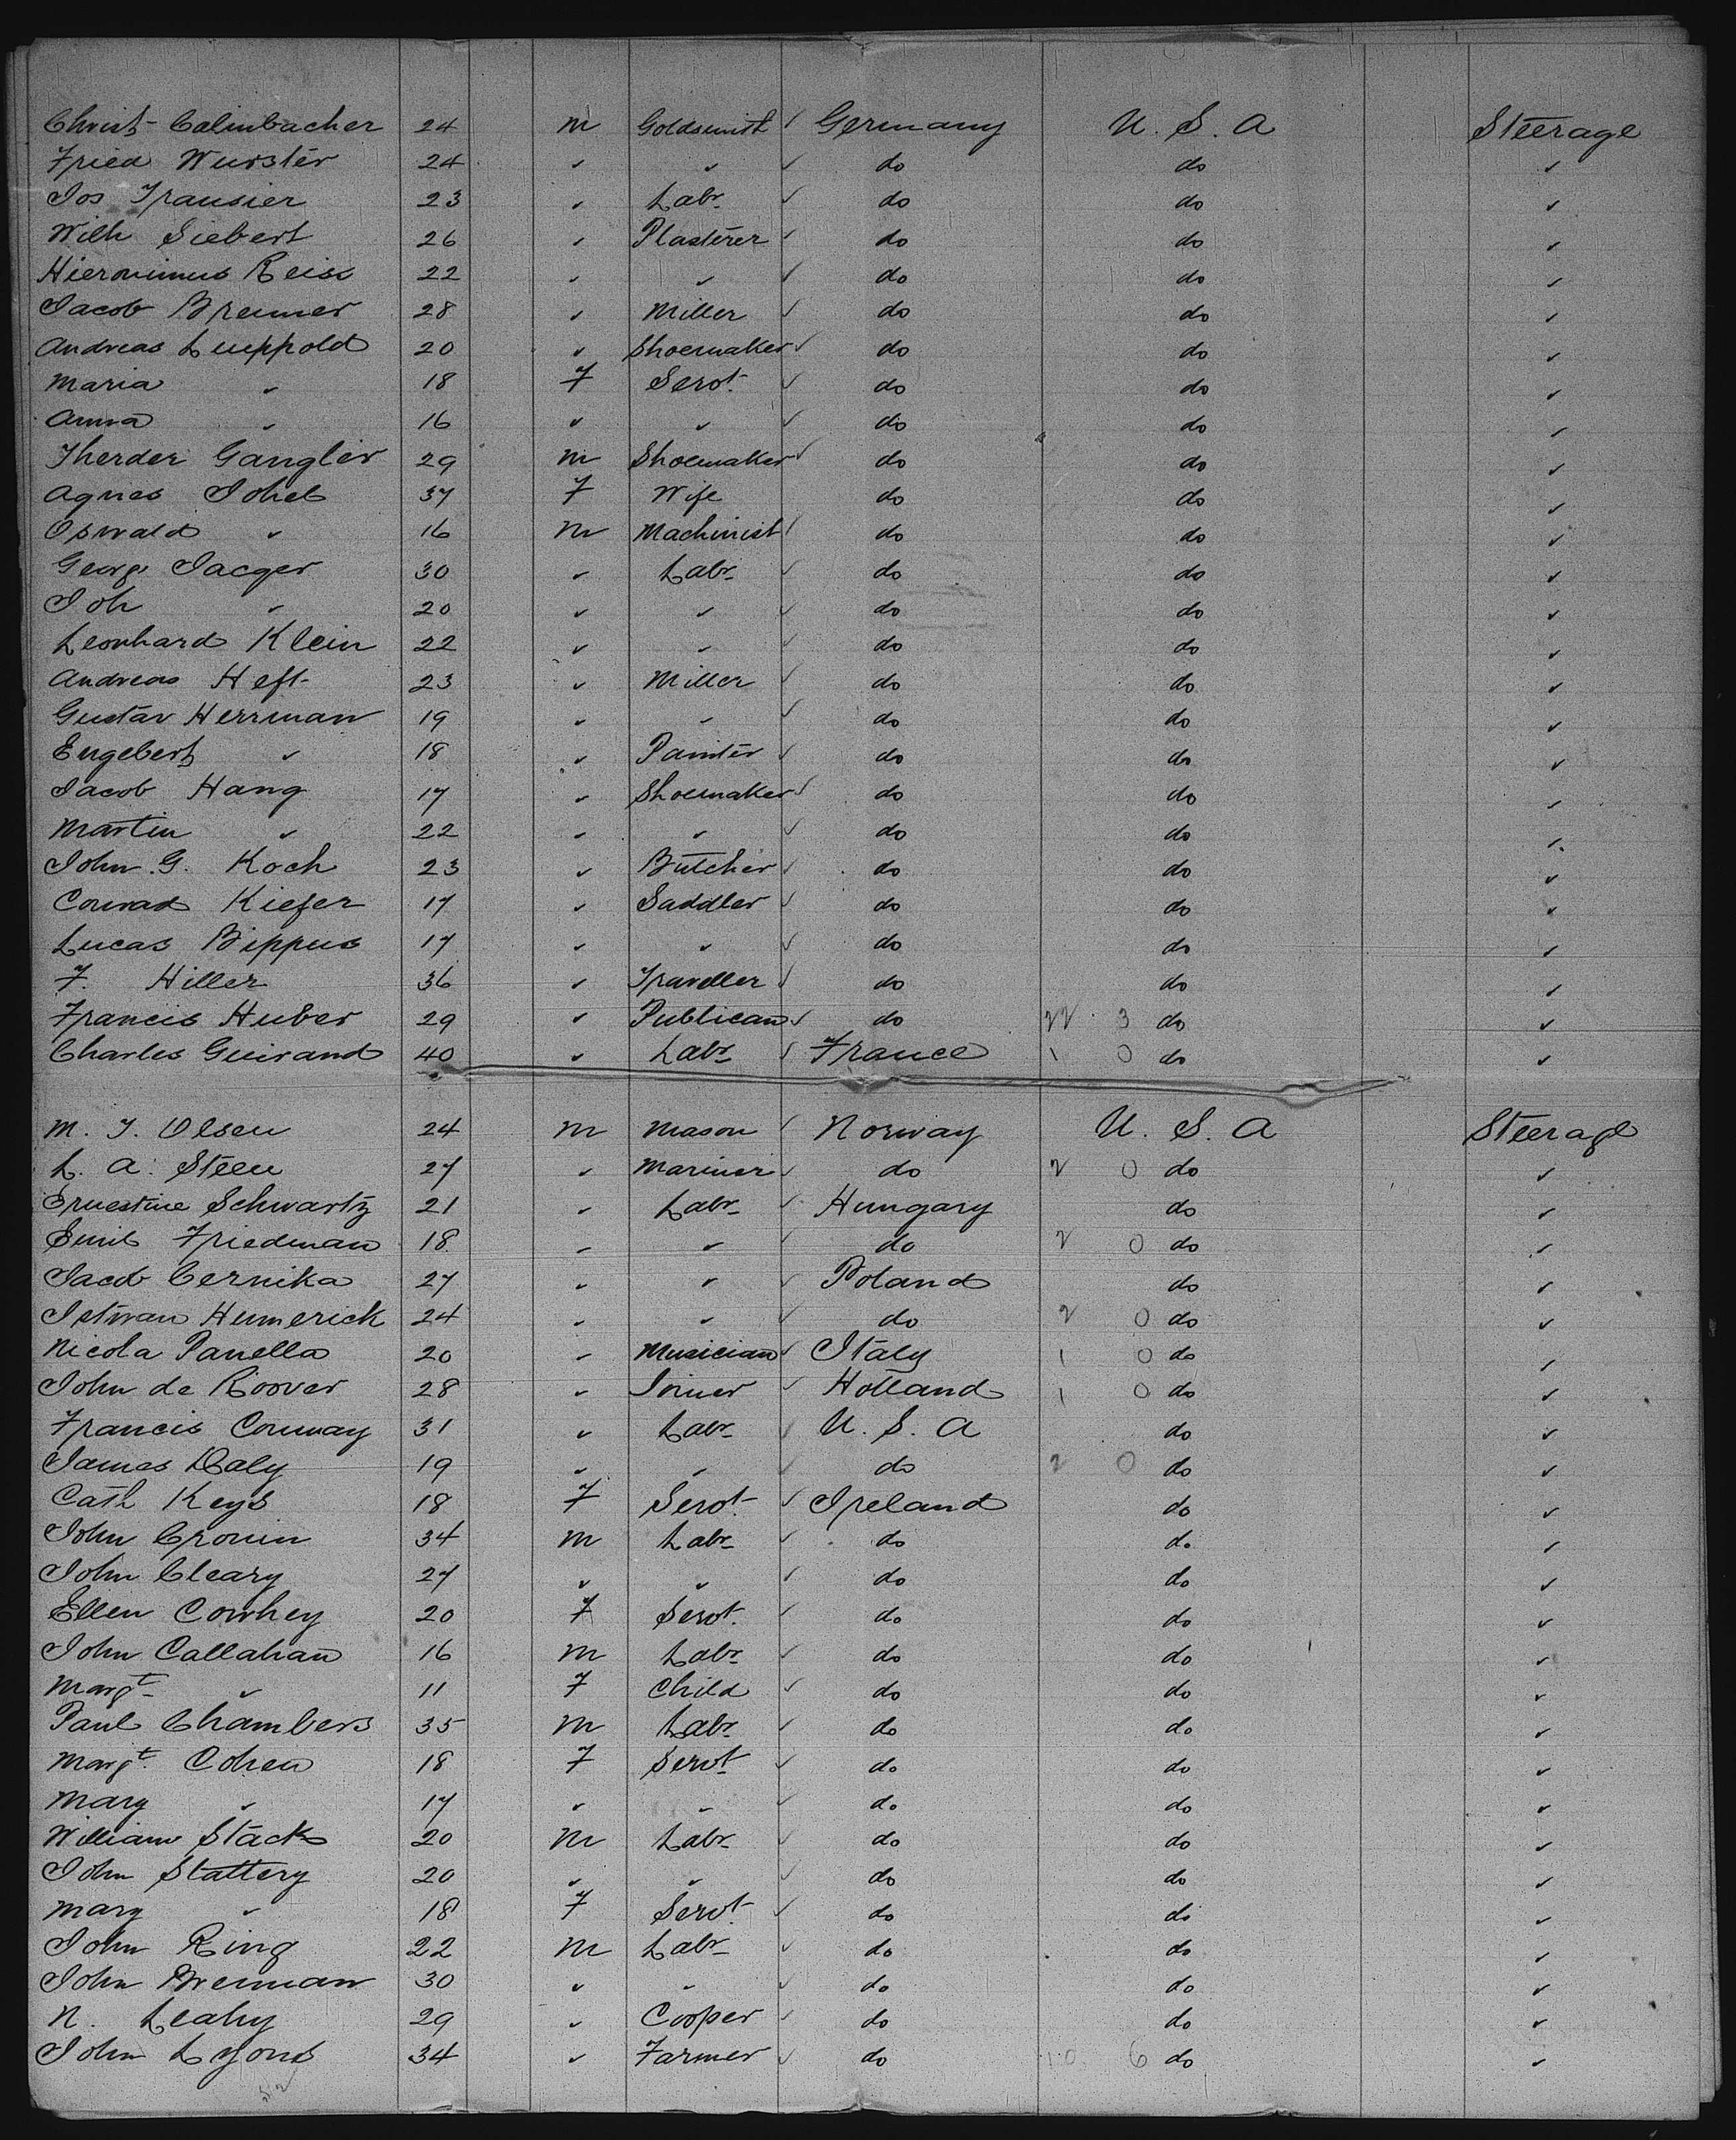 Christ Calmbacher 24 m Goldsmith ✓ Germany U. S. A Steerage
Fried Wurster 24 ✓ ✓ ✓ do do ✓
Jos Transier 23 ✓ Labr ✓ do do ✓
Wilh Siebert 26 ✓ Plasterer ✓ do do ✓
Hieronimus Reiss 22 ✓ ✓ ✓ do do ✓
Jacob Brenner 28 ✓ Miller ✓ do do ✓
Andreas Luppold 20 ✓ Shoemaker ✓ do do ✓
Maria ✓ 18 F Servt ✓ do do ✓
Anna ✓ 16 ✓ ✓ ✓ do do ✓
Therder Gangler 29 m Shoemaker ✓ do do ✓
Agnes 37 F Wife do do ✓
Oswald ✓ 16 m Machinist ✓ do do ✓
Georg Jaeger 30 ✓ Labr ✓ do do ✓
Joh ✓ 20 ✓ ✓ ✓ do do ✓
Leonhard Klein 22 ✓ ✓ ✓ do do ✓
Andreas Heft 23 ✓ Miller ✓ do do ✓
Gustav Herrman 19 ✓ ✓ ✓ do do ✓
Engebert ✓ 18 ✓ Painter ✓ do do ✓
Jacob Hang 17 ✓ Shoemaker ✓ do do ✓
Martin ✓ 22 ✓ ✓ ✓ do do ✓
John G. Koch 23 ✓ Butcher ✓ do do ✓
Conrad Kiefer 17 ✓ Saddler ✓ do do ✓
Lucas Bippus 17 ✓ ✓ ✓ do do ✓
F. Hiller 36 ✓ Traveller ✓ do do ✓
Francis Huber 29 ✓ Publican ✓ do 22 3 do ✓
Charles Guirand 40 ✓ Labr ✓ France 1 0 do ✓
M. J. Olsen 24 m Mason ✓ Norway U. S. A Steerage
L. A. Steen 27 ✓ Mariner ✓ do 2 0 do ✓
Ernestine Schwartz 21 ✓ Labr ✓ Hungary do ✓
Emil Friedman 18 ✓ ✓ ✓ do 2 0 do ✓
Jacob Cernika 27 ✓ ✓ ✓ Poland do ✓
Istvan Humerick 24 ✓ ✓ ✓ do 2 0 do ✓
Nicola Panella 20 ✓ Musician ✓ Italy 1 0 do ✓
John de Roover 28 ✓ Joiner ✓ Holland 1 0 do ✓
Francis Conway 31 ✓ Labr ✓ U. S. A do ✓
James Daly 19 ✓ ✓ ✓ do 2 0 do ✓
Cath Keys 18 F Servt ✓ Ireland do ✓
John Cronin 34 m Labr ✓ do do ✓
John Cleary 27 ✓ ✓ ✓ do do ✓
Ellen Cowhey 20 F Servt ✓ do do ✓
John Callahan 16 m Labr ✓ do do ✓
Margt ✓ 11 F Child ✓ do do ✓
Paul Chambers 35 m Labr ✓ do do ✓
Margt Cohen 18 F Servt ✓ do do ✓
Mary ✓ 17 ✓ ✓ ✓ do do ✓
William Stack 20 m Labr ✓ do do ✓
John Slattery 20 ✓ ✓ ✓ do do ✓
Mary ✓ 18 F Servt ✓ do do ✓
John Ring 22 m Labr ✓ do do ✓
John Brennan 30 ✓ ✓ ✓ do do ✓
N. Leahy 29 ✓ Cooper ✓ do do ✓
John Lyons 34 ✓ Farmer ✓ do 10 6 do ✓
52